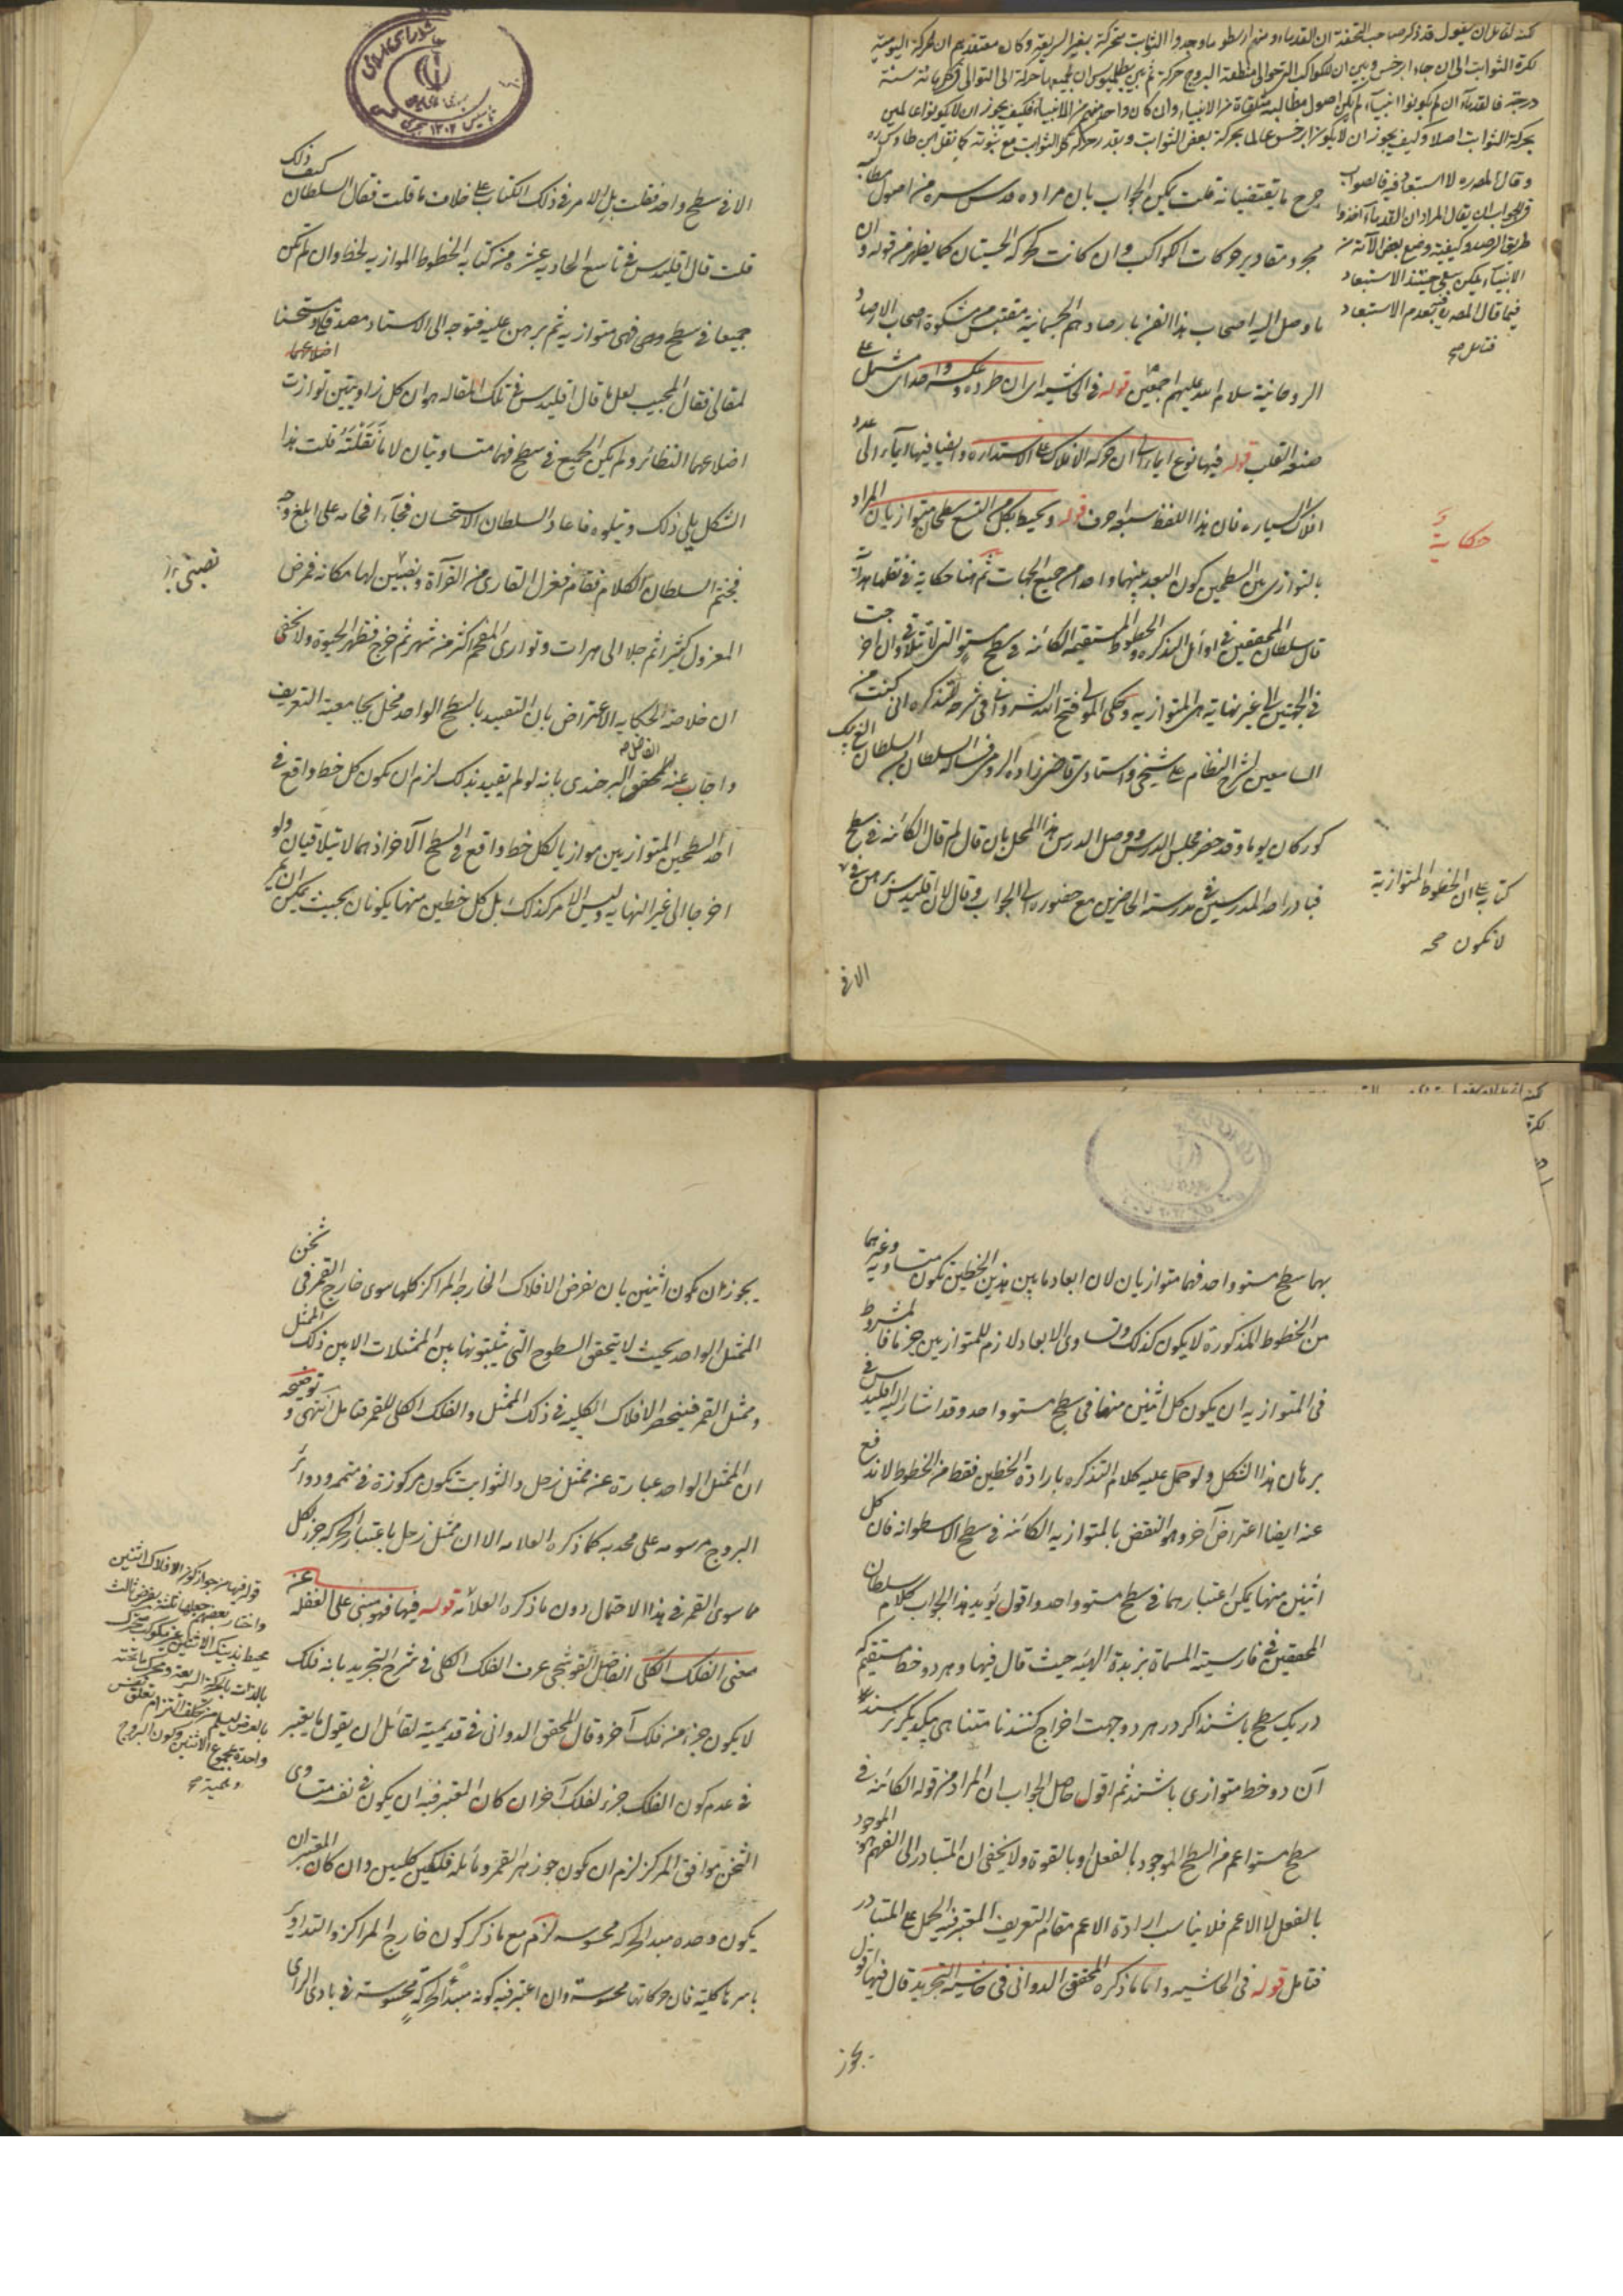 كنه لقائل ان يقول قد ذكر صاحب التحفة ان القدماء ومنهم ارسطو ما وجدوا الثوابت متحركة بغير السريعة وكان معتقدهم ان الحركة اليومية
لكرة الثوابت الى ان جاء ابرخس وبين ان للكواكب التى حوالى منطقة البروج حركة ثم بين بطلميوس ان لجميعها حركة الى التوالى فى كل مائة سنة
درجة فالقدماء ان لم يكونوا انبياء لم يكن اصول مطالبه متلقاة من الانبياء وان كان واحد منهم من الانبياء فكيف يجوز ان لا يكونوا عالمين
بحركة الثوابت اصلا وكيف يجوز ان لا يكون ابرخس عالما بحركة بعض الثوابت وبقدر حركة كل الثوابت مع نبوته كما نقل ابن طاوس ره
وقال المصدره لا استبعاد فيه فالصواب
فى الجواب ان يقال المراد ان القدماء اخذوا
طريق الرصد وكيفية وضع بعض الآلة من
الانبياء لكن يبقى حينئذ الاستبعاد
فيما قال المصدر فيه بعدم الاستبعاد
فتامل صح
جرح ما يقتضيانه قلت يمكن الجواب بان مراده قدس سره من اصول مطالبه
مجرد مقادير حركات الكواكب وان كانت كحركة الحيتان كما يظهر من قوله وان
ما وصل اليه اصحاب هذا الفن بارصادهم الجسمانية مقتبس من مشكوة اصحاب الارصاد
الروحانية سلام الله عليهم اجمعين قوله فى الحاشيه اى ان طرده وعكسه واحد اى مشتمل على
صنعة القلب قوله فيها نوع ايماء الى ان حركة الافلاك على الاستداره وايضا فيها ايماء الى عدد
افلاك السياره فان هذا اللفظ سبعة احرف قوله ويحيط بكل من التسع سطحان متوازيان المراد
بالتوازى بين السطحين كون البعد بينهما واحدا من جميع الجهات ثم هنا حكاية فى نقلها هداية
حكاية
قال سلطان المحققين فى اوائل التذكره والخطوط المستقيمه الكائنه فى سطح مستو التى لا تتلاقى وان اخرجت
فى الجهتين الى غير نهاية هى المتوازيه وحكى المولى فتح الله الشروانى فى شرحه للتذكره انى كنت من
السامعين لشرح النظام على شيخى واستادى قاضى زاده الرومى فساله السلطان بن السلطان الغ بيك
كوركان يوما وقد حضر مجلس الدرس ووصل الدرس هذا المحل بان قال لم قال الكائنه فى سطح
فبادر احد المدرسين فى مدرسته الحاضرين مع حضوره الى الجواب وقال لان اقليدس برهن فى
كتابه على ان الخطوط المتوازية
لا تكون صح
الا فى
الا فى سطح واحد فقلت بل الامر فى ذلك الكتاب على خلاف ما قلت فقال السلطان كيف ذلك
قلت قال اقليدس فى تاسع الحاديه عشره من كتابه الخطوط الموازيه لخط وان لم تكن
جميعا فى سطح وهى فهى متوازيه ثم برهن عليه فتوجه الى الاستاد مصدقا ومستحسنا
لمقالى فقال المجيب لعل ما قال اقليدس فى تلك المقاله هو ان كل زاويتين توازت اضلاعهما
اضلاعهما النظائر ولم يكن الجميع فى سطح فهما متساويتان لا ما نَقَلْتَهُ قلت هذا
الشكل يلى ذلك ويتلوه فاعاد السلطان الاستحسان فجاء افحامه على ابلغ وجه
فختم السلطان الكلام فقام فعزل القارى من القراة ونصبنى لها مكانه فمرض
نصبنى
المعزول كثيرا ثم جلا الى هرات وتوارى المفحم اكثر من شهر ثم خرج فظهر الحيوة ولا يخفى
ان خلاصة الحكايه الاعتراض بان التقييد بالسطح الواحد مخل بجامعية التعريف
واجاب عنه الفاضل المحقق البرجندى بانه لو لم يقيد بذلك لزم ان يكون كل خط واقع فى
احد السطحين المتوازيين موازيا لكل خط واقع فى السطح الآخر اذ هما لا يتلاقيان ولو
اخرجا الى غير النهايه وليس الامر كذلك بل كل خطين منها يكونان بحيث يمكن ان يمر
بهما سطح مستو واحد فهما متوازيان لان ابعاد ما بين هذين الخطين تكون متساويه وغيرهما
من الخطوط المذكورة لا يكون كذلك وتساوى الابعاد لازم للمتوازيين جزما فالمشروط
فى المتوازيه ان يكون كل اثنين منها فى سطح مستو واحد وقد اشار اليه اقليدس فى
برهان هذا الشكل ولو حمل عليه كلام التذكره بارادة الخطين فقط من الخطوط لاندفع
عنه ايضا اعتراض آخر وهو النقض بالمتوازيه الكائنه فى سطح الاسطوانه فان كل
اثنين منها يمكن اعتبارهما فى سطح مستو واحد واقول يؤيد هذا الجواب كلام سلطان
المحققين فى فارسيته المسماة بزبدة الهيئه حيث قال فيها وهر دو خط مستقيم كه
در يك سطح باشند اكر در هر دو جهت اخراج كنند نا متناهى بيكديكر نرسند
آن دو خط متوازى باشند ثم اقول حاصل الجواب ان المراد من قوله الكائنه فى
سطح مستو اعم من السطح الموجود بالفعل او بالقوة ولا يخفى ان المتبادر الى الفهم هو الموجود
بالفعل لا الاعم فلا يناسب ارادة الاعم مقام التعريف المعتبر فيه الحمل على المتبادر
فتامل قوله فى الحاشيه واما ما ذكره المحقق الدوانى فى حاشية التجريد قال فيها اقول
يجوز
يجوز ان يكون اثنين بان نفرض الافلاك الخارجه المراكز كلها سوى خارج القمر فى ثخن
الممثل الواحد بحيث لا يتحقق السطوح التى يثبتونها بين الممثلات الا بين ذلك الممثل
وممثل القمر فينحصر الافلاك الكليه فى ذلك الممثل والفلك الكلى للقمر فتامل انتهى وتوضيحه
ان الممثل الواحد عبارة عن ممثل زحل والثوابت تكون مركوزة فى متممه ودوائر
البروج مرسومه على محدبه كما ذكره العلامه الا ان ممثل زحل باعتبار الحركه جزء كل
مما سوى القمر فى هذا الاحتمال دون ما ذكره العلامه قوله فيها فهو مبنى على الغفله عن
معنى الفلك الكلى الفاضل القوشجى عرف الفلك الكلى فى شرح التجريد بانه فلك
لا يكون جزء من فلك آخر وقال المحقق الدوانى فى قديميته لقائل ان يقول ما يعتبر
فى عدم كون الفلك جزء لفلك آخر ان كان المعتبر فيه ان يكون فى نفسه متساوى
الثخن موافق المركز لزم ان يكون جوزهر القمر ومائله فلكين كليين وان كان المعتبر ان
يكون وحده مبدء الحركه محسوسه لزم مع ما ذكر كون خارج المراكز والتداوير
باسرها كليته فان حركاتها محسوسة وان اعتبر فيه كونه مبدأ لحركة محسوسة فى بادى الراى
قوله فيها من جواز كون الافلاك اثنين
واختار بعضهم جعلها ثلثة بفرض ثالث